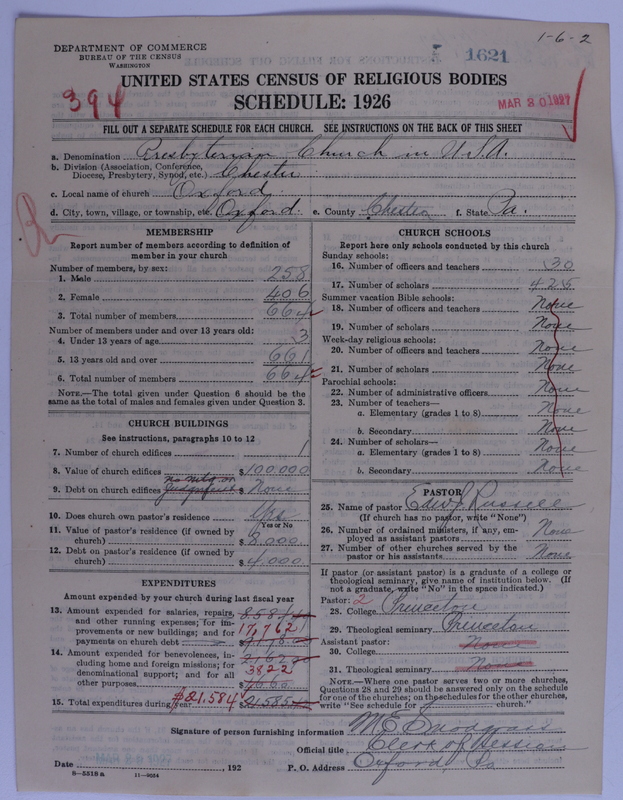 1-6-2
DEPARTMENT OF COMMERCE
BUREAU OF THE CENSUS
WASHINGTON
1621
UNITED STATES CENSUS OF RELIGIOUS BODIES
394
SCHEDULE: 1926
MAR 30 1927
FILL OUT A SEPARATE SCHEDULE FOR EACH CHURCH. SEE INSTRUCTIONS ON THE BACK OF THIS SHEET
a. Denomination Presbyterian Church in U.S.A.
b. Division (Association, Conference,
Diocese, Presbytery, Synod, etc.) Chester
c. Local name of church Oxford
d. City, town, village, or township, etc. Oxford. e. County Chester f. State Pa.
MEMBERSHIP
Report number of members according to definition of
member in your church
Number of members, by sex:
1. Male 258
2. Female 406
3. Total number of members 664
Number of members under and over 13 years old:
4. Under 13 years of age 3
5. 13 years old and over 661
6. Total number of members 664
NOTE.—The total given under Question 6 should be the
same as the total of males and females given under Question 3.
CHURCH BUILDINGS
See instructions, paragraphs 10 to 12
7. Number of church edifices 1
8. Value of church edifices $100,000
no mtg. or
9. Debt on church edifices $ None
10. Does church own pastor's residence Yes
Yes or No
11. Value of pastor's residence (if owned by
church) $ 8,000
12. Debt on pastor's residence (if owned by
church) $ 4,000
EXPENDITURES
Amount expended by your church during last fiscal year
13. Amount expended for salaries, repairs,
and other running expenses; for im-
provements or new buildings; and for
payments on church debt
17,762
14. Amount expended for benevolences, in-
cluding home and foreign missions; for
denominational support; and for all
other purposes
3822
15. Total expenditures during year $21,584
$ 21,585
CHURCH SCHOOLS
Report here only schools conducted by this church
Sunday schools:
16. Number of officers and teachers 30
17. Number of scholars 425
Summer vacation Bible schools:
18. Number of officers and teachers None
19. Number of scholars None
Week-day religious schools:
20. Number of officers and teachers None
21. Number of scholars None
Parochial schools:
22. Number of administrative officers None
23. Number of teachers—
a. Elementary (grades 1 to 8) None
b. Secondary None
24. Number of scholars—
a. Elementary (grades 1 to 8) None
b. Secondary None
PASTOR
25. Name of pastor Edw. J. Russell
(If church has no pastor, write "None")
26. Number of ordained ministers, if any, em-
ployed as assistant pastors None
27. Number of other churches served by the
pastor or his assistants None
If pastor (or assistant pastor) is a graduate of a college or
theological seminary, give name of institution below. (If
not a graduate, write "No" in the space indicated.)
Pastor: 2
28. College Princeton
29. Theological seminary Princeton
Assistant pastor:
30. College None
31. Theological seminary None
NOTE.—Where one pastor serves two or more churches,
Questions 28 and 29 should be answered only on the schedule
for one of the churches; on the schedules for the other churches,
write "See schedule for church."
Signature of person furnishing information M. E. Snodgrass
Official title Clerk of Session
Date , 192 P. O. Address Oxford, Pa
8—5518 a 11—9054